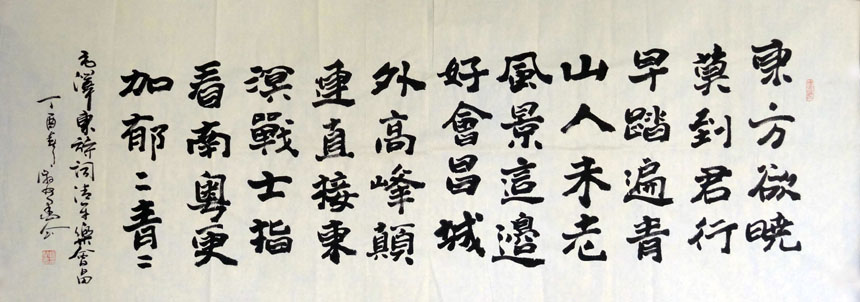 東方欲曉
莫到君行
早踏遍青
山人未老
風景這邊
好會昌城
外高峰顛
連直接東
溟戰士指
看南粵更
加郁二青二
毛澤東詩詞清平樂會昌
丁酉春